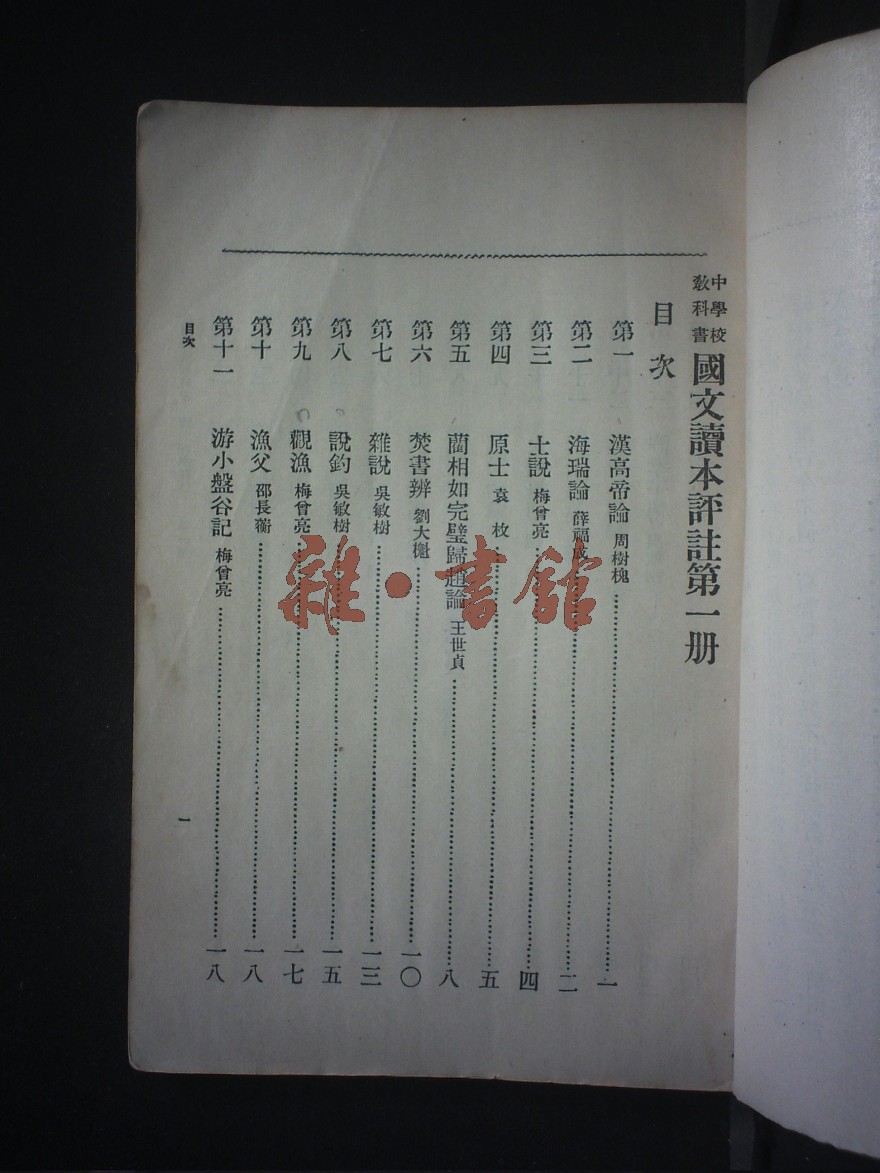 中學校教科書 國文讀本評註第一册
目次
第一 漢高帝論 周樹槐 一
第二 海瑞論 薛福成 二
第三 士說 梅曾亮 四
第四 原士 袁枚 五
第五 藺相如完璧歸趙論 王世貞 八
第六 焚書辨 劉大櫆 一〇
第七 雜說 吳敏樹 一三
第八 說釣 吳敏樹 一五
第九 觀漁 梅曾亮 一七
第十 漁父 邵長蘅 一八
第十一 游小盤谷記 梅曾亮 一八
目次 一
雜·書館